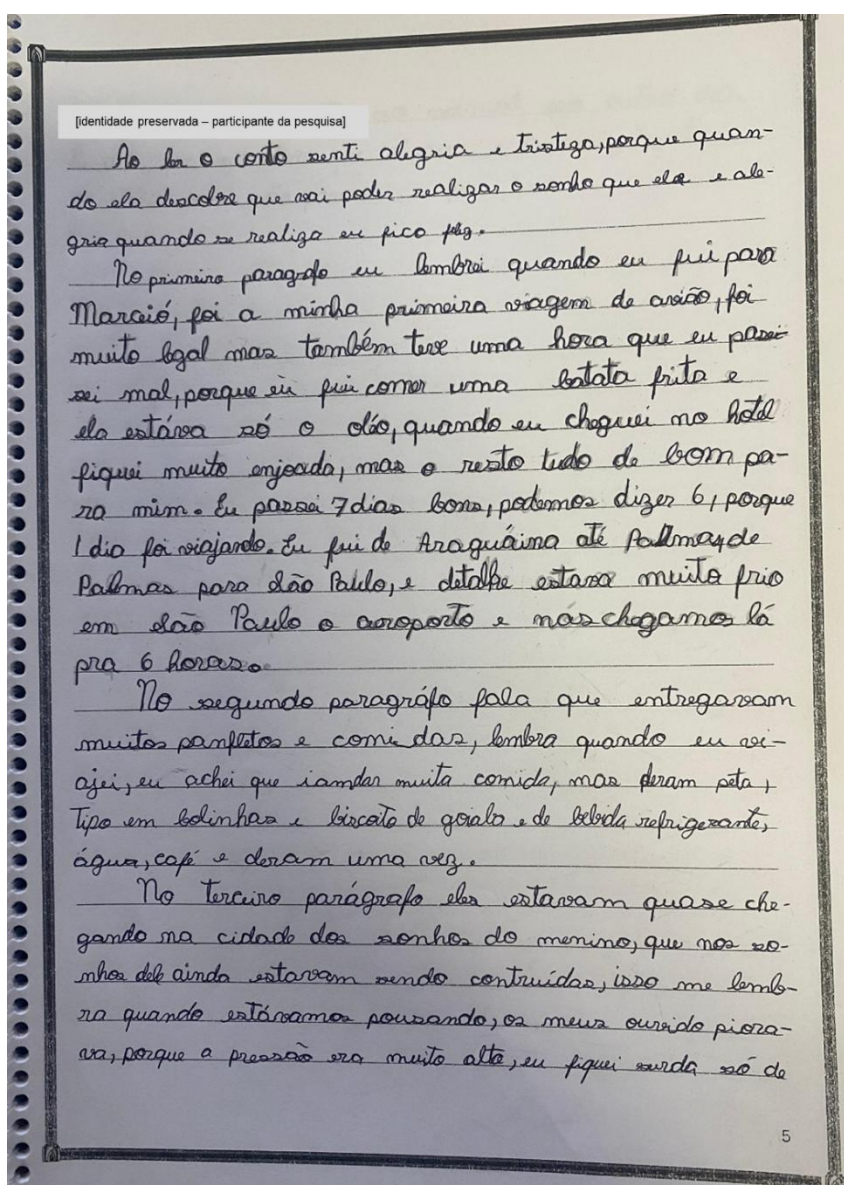 [identidade preservada – participante da pesquisa]
Ao ler o conto senti alegria e tristeza, porque quan-
do ela descobre que vai poder realizar o sonho que ela e ale-
gria quando se realiza eu fico feliz.
No primeiro paragrafo eu lembrei quando eu fui para
Marceió, foi a minha primeira viagem de avião, foi
muito legal mas também teve uma hora que eu passei
sei mal, porque eu fui comer uma batata frita e
ela estáva só o oléo, quando eu cheguei no hotel
fiquei muito enjoada, mas o resto tudo de bom pa-
ra mim. Eu passei 7 dias bons, podemos dizer 6, porque
1 dia foi viajando. Eu fui de Araguáina até Palmas, de
Palmas para São Paulo, e detalhe estava muito frio
em São Paulo o aeroporto e nós chegamos lá
pra 6 horas.
No segundo paragráfo fala que entregavam
muitos panfletos e comidas, lembra quando eu vi-
ajei, eu achei que iam dar muita comida, mas deram peta,
Tipo em bolinhas e biscoito de goiaba e de bebida refrigerante,
água, café e deram uma vez.
No terceiro parágrafo eles estavam quase che-
gando na cidade dos sonhos do menino, que nos so-
nhos dele ainda estavam sendo contruídas, isso me lemb-
ra quando estávamos pousando, os meus ouvido piora-
va, porque a pressão era muito alta, eu fiquei surda só de
5